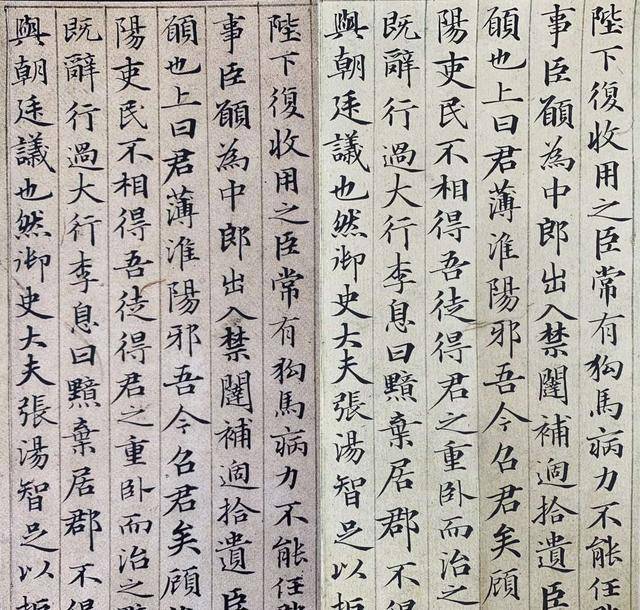 陛下復收用之臣常有狗馬病力不能任
事臣願為中郎出入禁闥補過拾遺臣
願也上曰君薄淮陽邪吾今召君矣顧
陽吏民不相得吾徒得君之重臥而治之
既辭行過大行李息曰黯棄居郡不得
與朝廷議也然御史大夫張湯智足以拒
陛下復收用之臣常有狗馬病力不能任
事臣願為中郎出入禁闥補過拾遺臣
願也上曰君薄淮陽邪吾今召君矣顧
陽吏民不相得吾徒得君之重臥而治之
既辭行過大行李息曰黯棄居郡不得
與朝廷議也然御史大夫張湯智足以拒